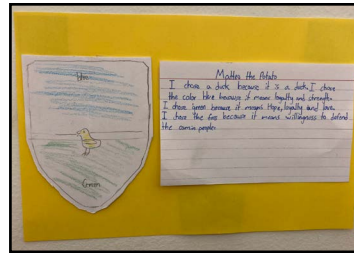 Blue
Green
Mattes the Potato
I chose a duck because it is a duck. I chose
the color blue because it means loyalty and strength.
I chose green because it means Hope, loyalty and love.
I chose the fire because it means willingness to defend
the common people.